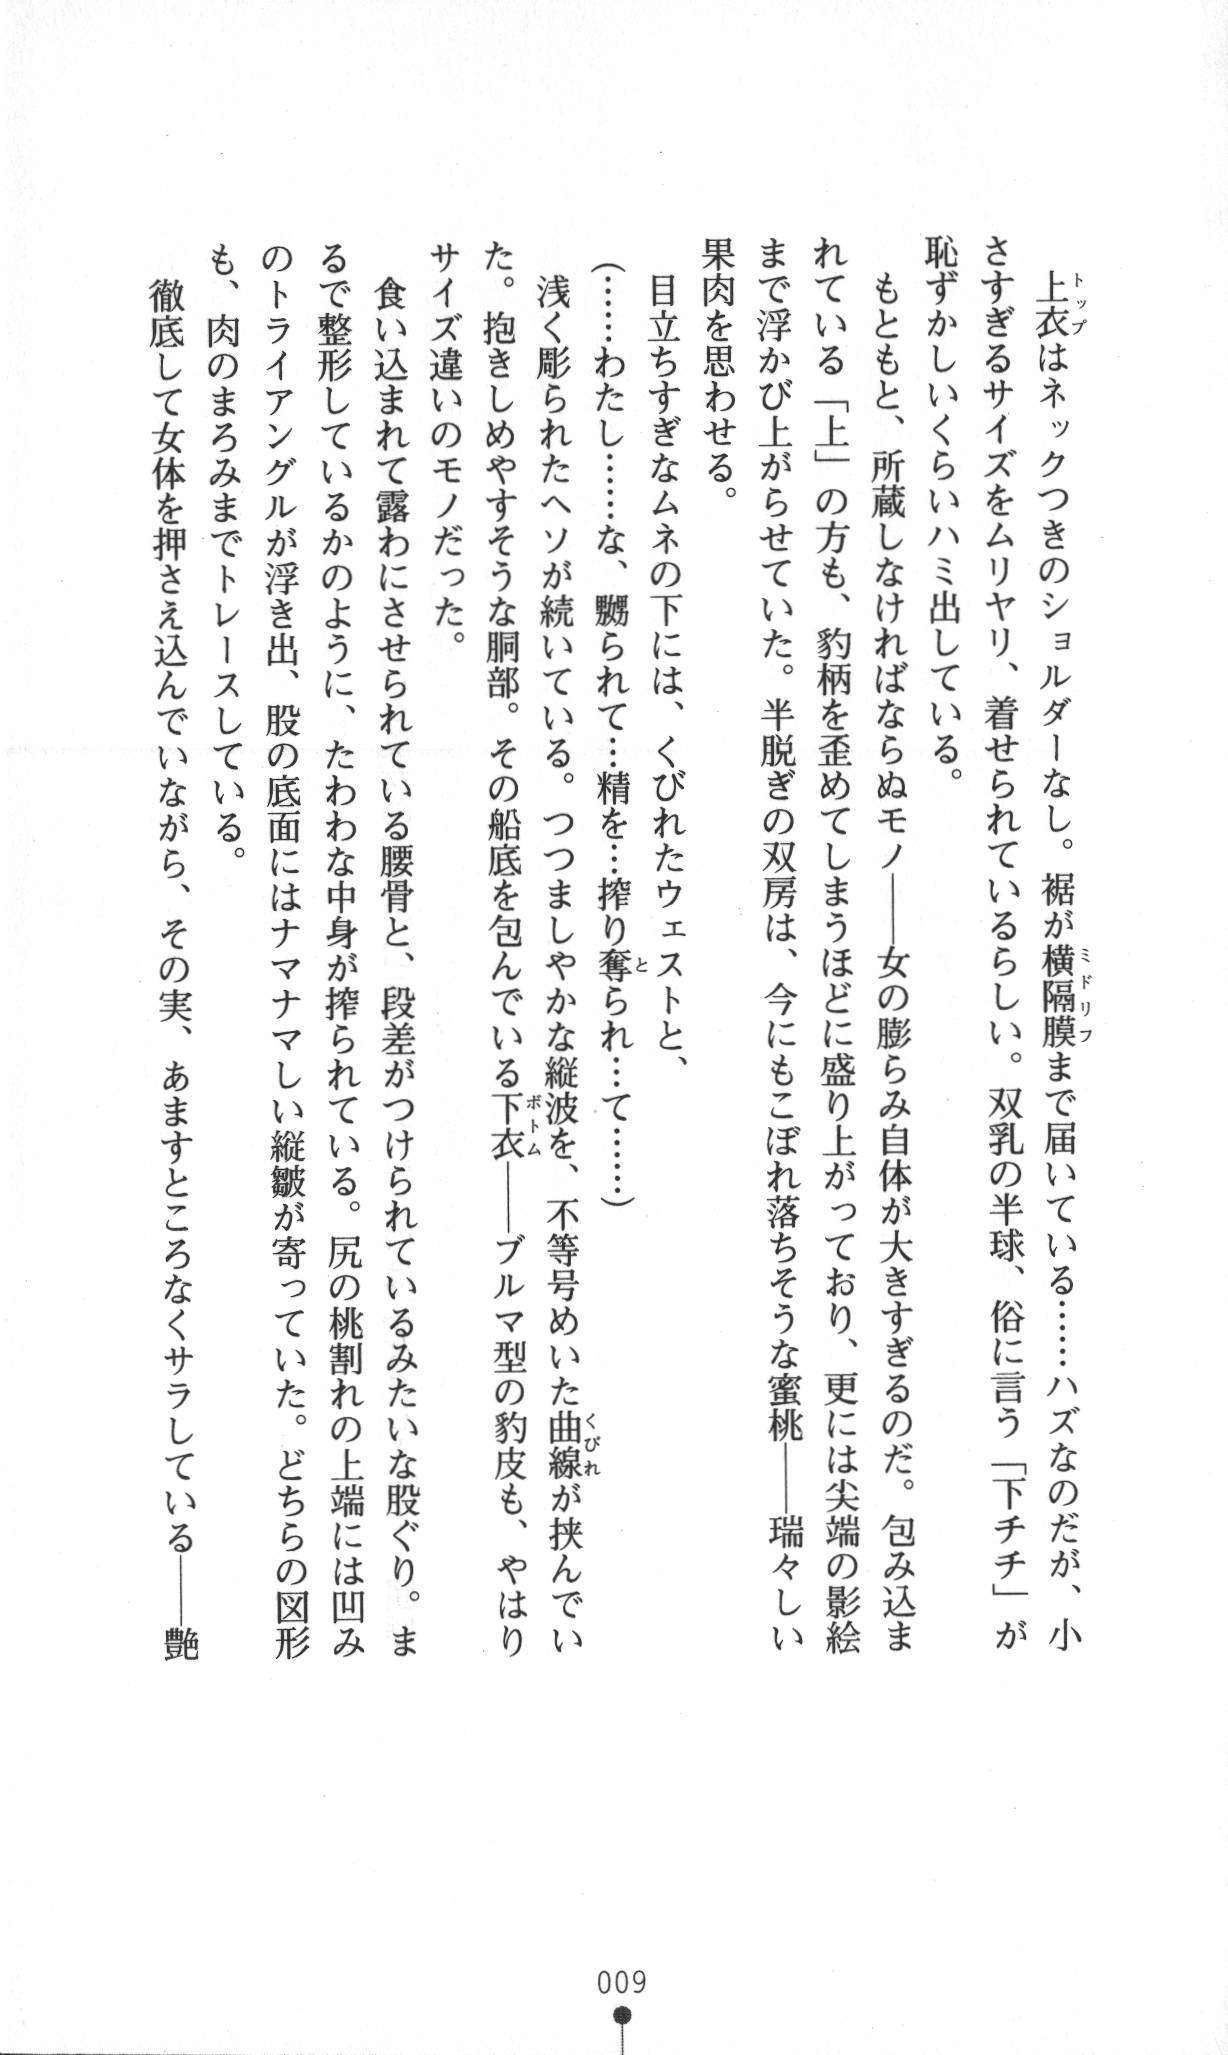 上衣はネックつきのショルダーなし。裾が横隔膜まで届いている……ハズなのだが、小
さすぎるサイズをムリヤリ、着せられているらしい。双乳の半球、俗に言う「下チチ」が
恥ずかしいくらいハミ出している。
もともと、所蔵しなければならぬモノ――女の膨らみ自体が大きすぎるのだ。包み込ま
れている「上」の方も、豹柄を歪めてしまうほどに盛り上がっており、更には尖端の影絵
まで浮かび上がらせていた。半脱ぎの双房は、今にもこぼれ落ちそうな蜜桃――瑞々しい
果肉を思わせる。
目立ちすぎなムネの下には、くびれたウェストと、
（……わたし……な、嬲られて…精を…搾り奪られ…て……）
浅く彫られたヘソが続いている。つつましやかな縦波を、不等号めいた曲線が挟んでい
た。抱きしめやすそうな胴部。その船底を包んでいる下衣――ブルマ型の豹皮も、やはり
サイズ違いのモノだった。
食い込まれて露わにさせられている腰骨と、段差がつけられているみたいな股ぐり。ま
るで整形しているかのように、たわわな中身が搾られている。尻の桃割れの上端には凹み
のトライアングルが浮き出、股の底面にはナマナマしい縦皺が寄っていた。どちらの図形
も、肉のまろみまでトレースしている。
徹底して女体を押さえ込んでいながら、その実、あますところなくサラしている――艶
トップ
ミドリフ
と
くびれ
ボトム
009